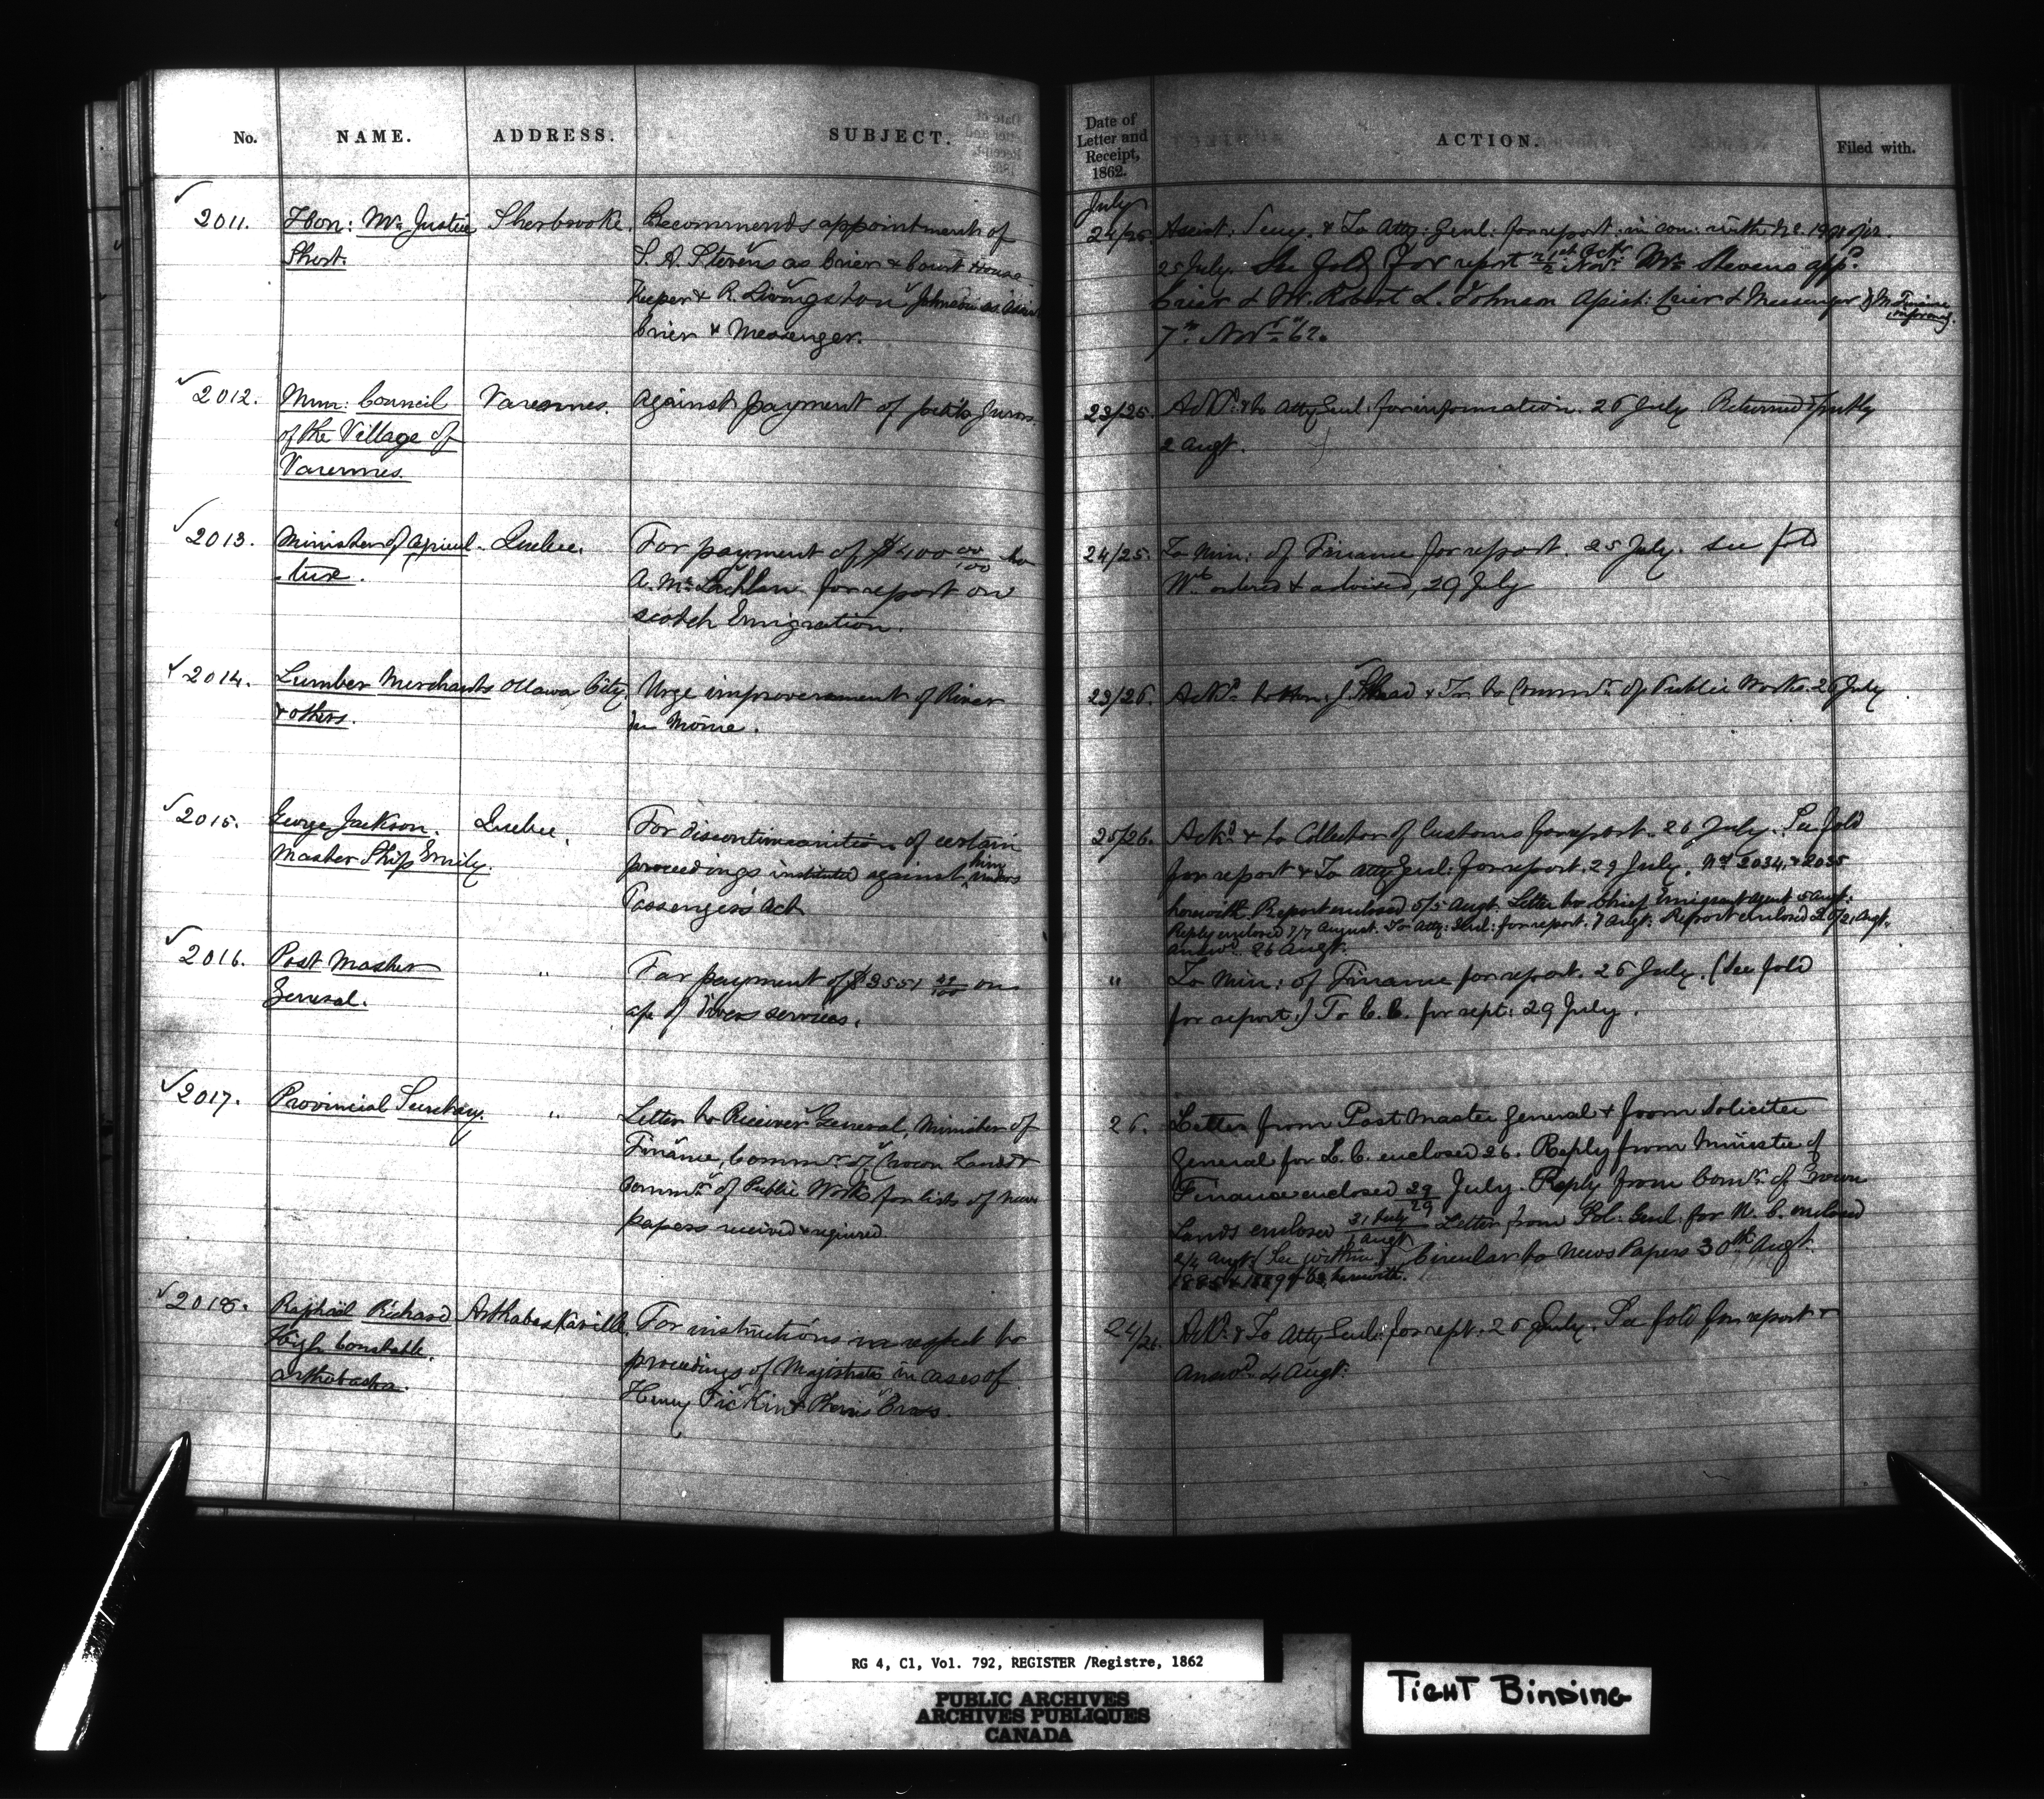 No.
NAME.
ADDRESS.
SUBJECT.
Date of
Letter and
Receipt,
1862.
ACTION.
Filed with.
July
2011.
Hon: Mr. Justice
Short.
Sherbrooke.
Recommends appointment of
S. A. Stevens as Crier & Court House
Keeper & R. Livingston Johnson as Assist
Crier & Messenger.
24/25
Secy. & To Atty: Genl: for report in con: with No.
25 July. See fold for report Novr. Mr. Stevens appd.
Crier & Mr. Robert L. Johnson Assist: Crier & Messenger
7th Novr. 62.
2012.
Mun: Council
of the Village of
Varennes.
Varennes.
Against payment of petits Jurors.
23/25.
Ackd. & to Atty Genl: for information. 26 July Returned
2 Augt.
2013.
Minister of Agricul-
-ture.
Quebec.
For payment of $400 00/100 to
A. McLachlan for report on
Scotch Emigration.
24/25.
To Min: of Finance for report. 25 July. see fold
Wt. ordered & advised, 29 July
2014.
Lumber Merchants
& others.
Ottawa City
Urge improverament of River
du Moine.
23/26.
Ackd. to Hon: J. Skead & To Commr. of Public Works. 26 July
2015.
George Jackson.
Master Ship Emily.
Quebec.
For discontinuanition of certain
proceedings instituted against him under
Passengers Act
25/26.
Ackd. & to Collector of Customs for report. 26 July. See fold
for report & To Atty Genl: for report. 29 July. Nos. 2034 & 2035
herewith Report enclosed 5/5 Augt. Letter to Chief Emigrant Agent 5 Augt:
Reply enclosed 7/7 August. To Atty: Genl: for report. 7 Augt: Report enclosed 20/21 Augt.
answd. 26 Augt.
2016.
Post Master
General.
"
For payment of on
a/c of divers services.
"
To Min: of Finance for report. 26 July. (See fold
for report.) To E. C. for rept: 29 July.
2017.
Provincial Secretary.
"
Letter to Receiver General, Minister of
Finance, Commr. of Crown Lands &
Commr. of Public Works for lists of news
papers received & required
26.
Letter from Post Master General & from Solicitor
General for L. C. enclosed 26. Reply from Minister of
Finance enclosed 29/29 July. Reply from Comr. of Crown
Lands enclosed 31 July/1 Augt Letter from Sol: Genl: for U. C. enclosed
2/4 Augt. (See within) Circular to News Papers 30th Augt.
herewith.
2018.
Raphael Richard
High Constable.
Arthabaska.
Arthabaskaville.
For instructions in respect to
proceedings of Magistrates in cases of
Henry
24/26.
Ackd. & To Atty Genl: for rept. 26 July. See fold for report &
answd. 4 Augt:
RG 4, C1, Vol. 792, REGISTER /Registre, 1862
PUBLIC ARCHIVES
ARCHIVES PUBLIQUES
CANADA
TIGHT BINDING